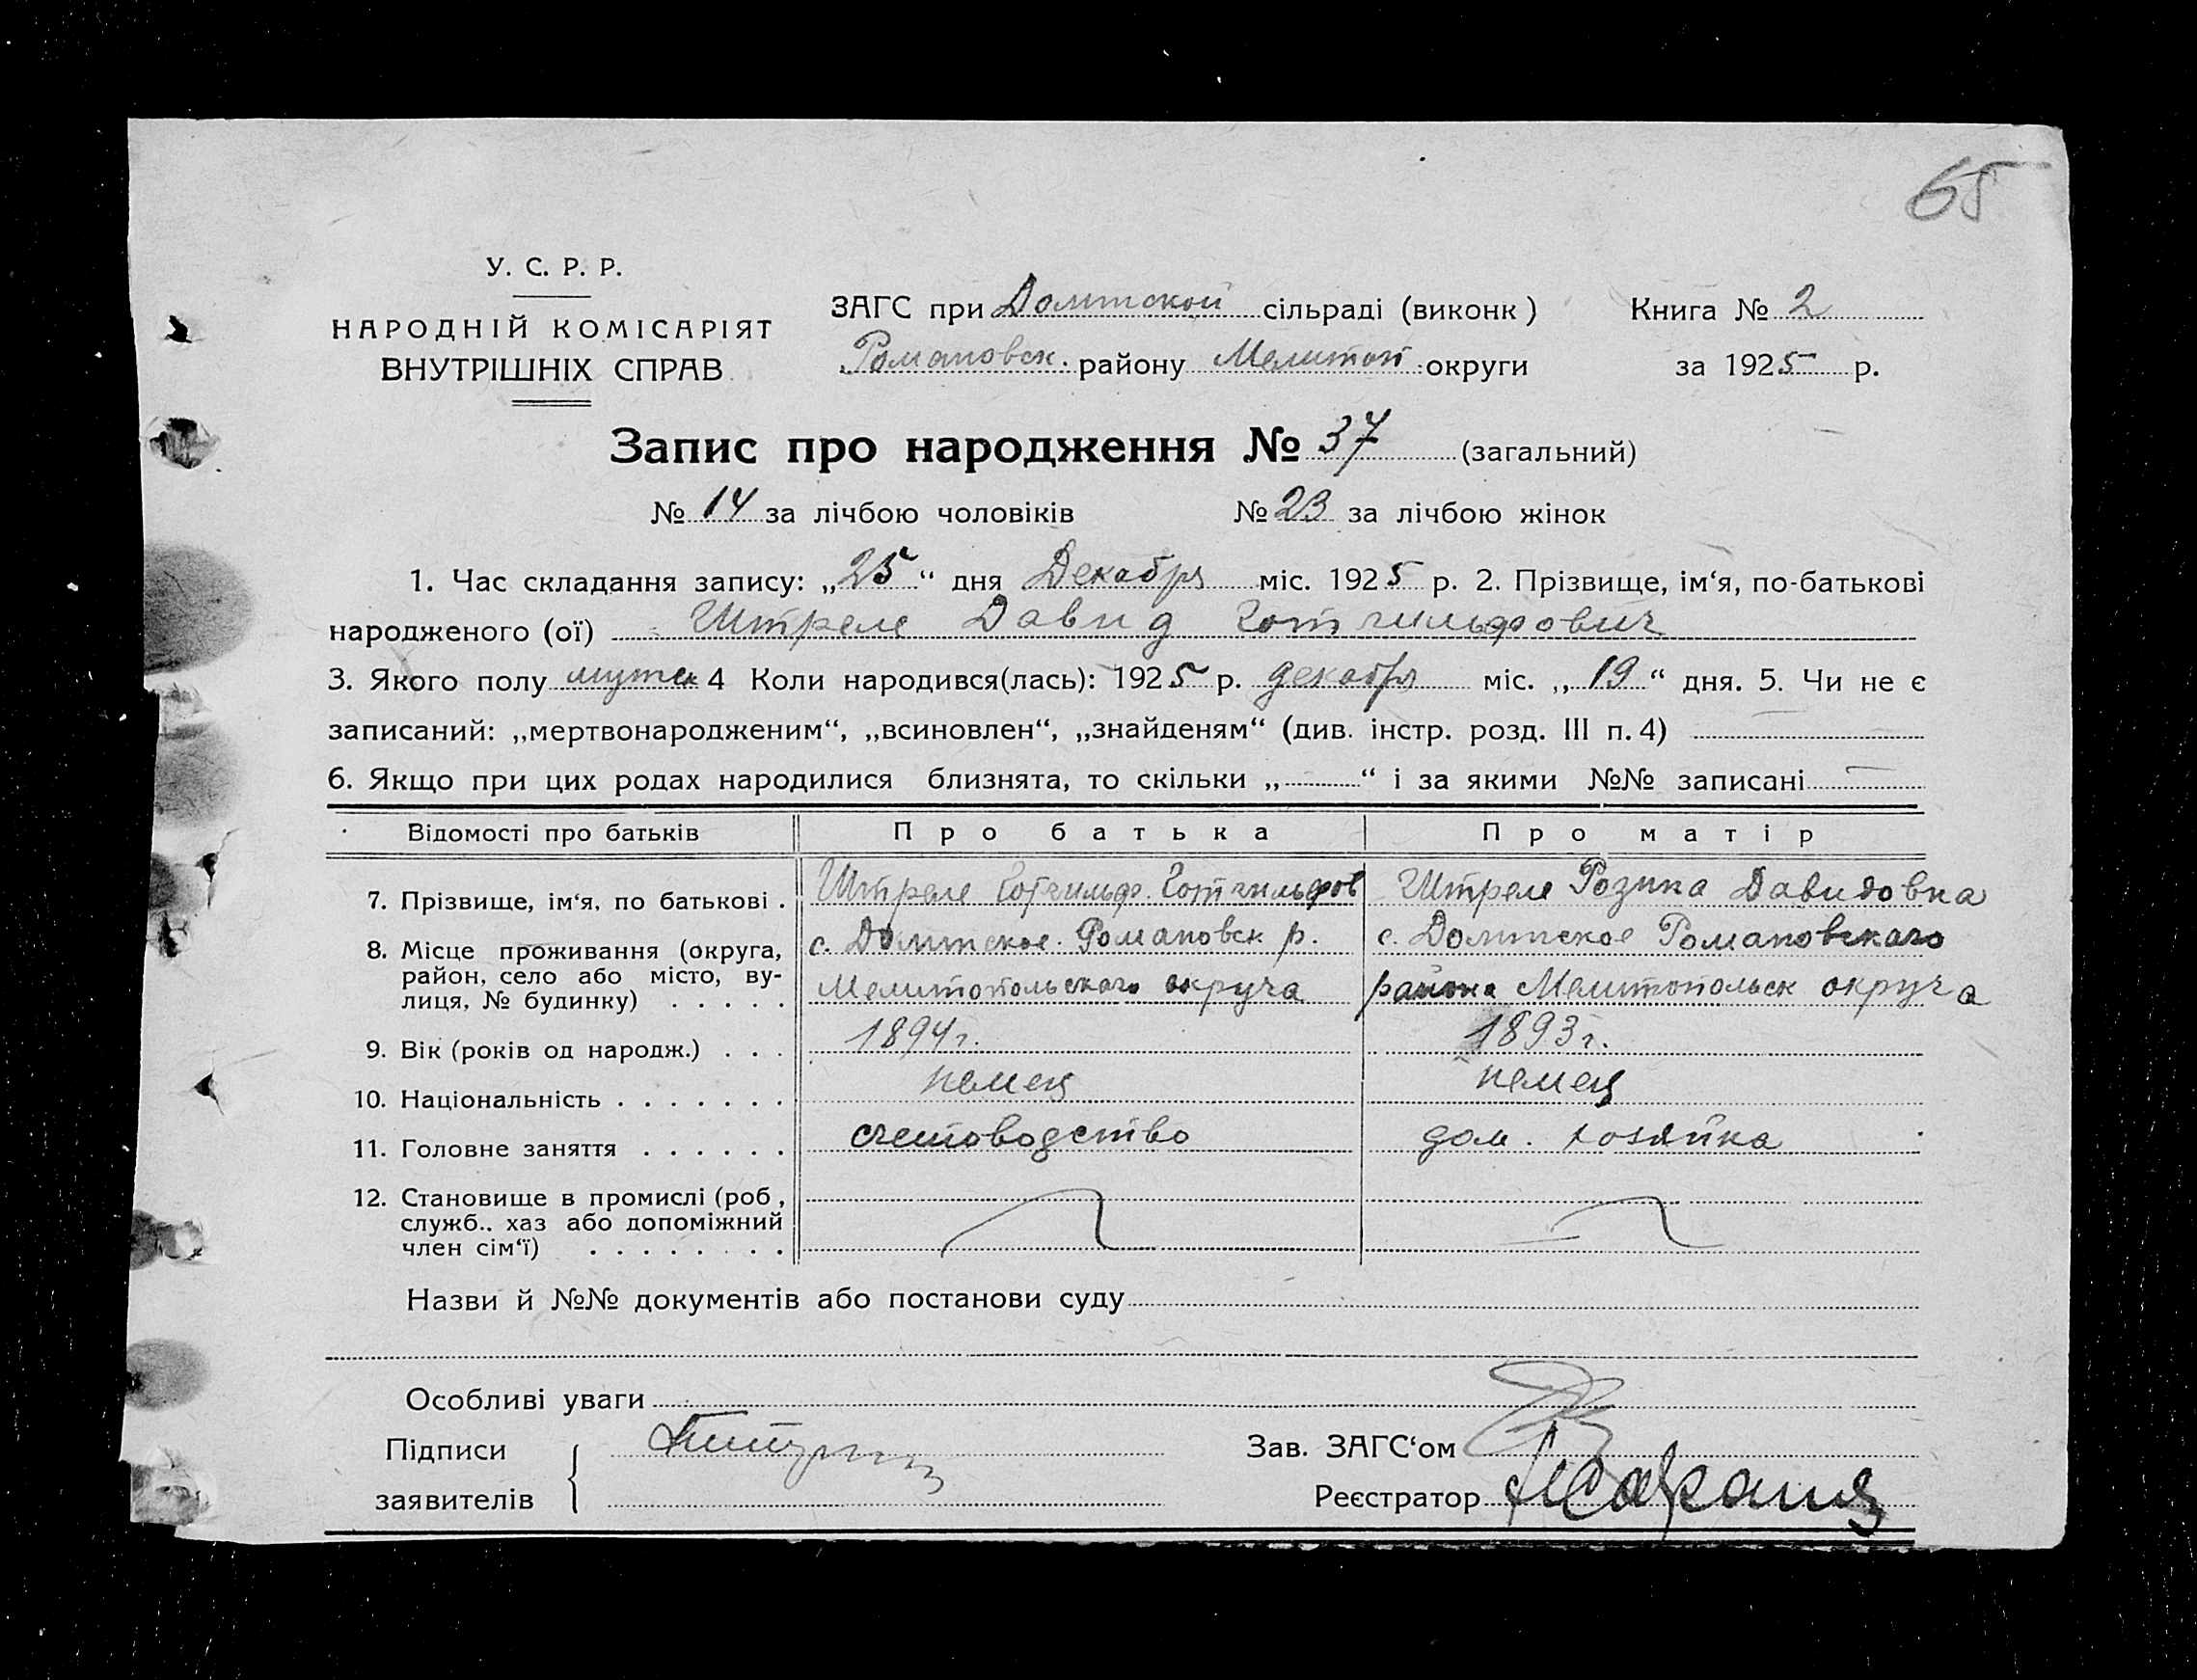 65
У. С. Р. Р.
НАРОДНІЙ КОМІСАРІЯТ
ВНУТРІШНІХ СПРАВ
ЗАГС при Долинской сільраді (виконк) Книга № 2
Романовск. району Мелитоп округи за 1925 р.
Запис про народження № 37 (загальний)
№ 14 за лічбою чоловіків № 23 за лічбою жінок
1. Час складання запису: „25“ дня Декабря міс. 1925 р. 2. Прізвище, ім‘я, по-батькові
народженого (ої) Штреле Давид Готгильфович
3. Якого полу мужск 4 Коли народився(лась): 1925 р. декабря міс. „19“ дня. 5. Чи не є
записаний: „мертвонародженим“, „всиновлен“, „знайденям“ (див. інстр. розд. III п. 4)
6. Якщо при цих родах народилися близнята, то скільки „ “ і за якими №№ записані
Відомості про батьків Про батька Про матір
7. Прізвище, ім‘я, по батькові . Штреле Готгильф. Готгильфов Штреле Розина Давидовна
8. Місце проживання (округа, с. Долинское Романовск р. с. Долинское Романовскаго
район, село або місто, ву-
лиця, № будинку) . . . . . Мелитопольскаго округа района Мелитопольск округа
9. Вік (років од народж.) . . . 1894г. 1893г.
10. Національність . . . . . . . немец немец
11. Головне заняття . . . . . . счетоводство дом. хозяйка
12. Становище в промислі (роб,
служб.. хаз або допоміжний
член сім‘ї) . . . . . . . .
Назви й №№ документів або постанови суду
Особливі уваги
Підписи
заявителів
Зав. ЗАГС‘ом
Реєстратор